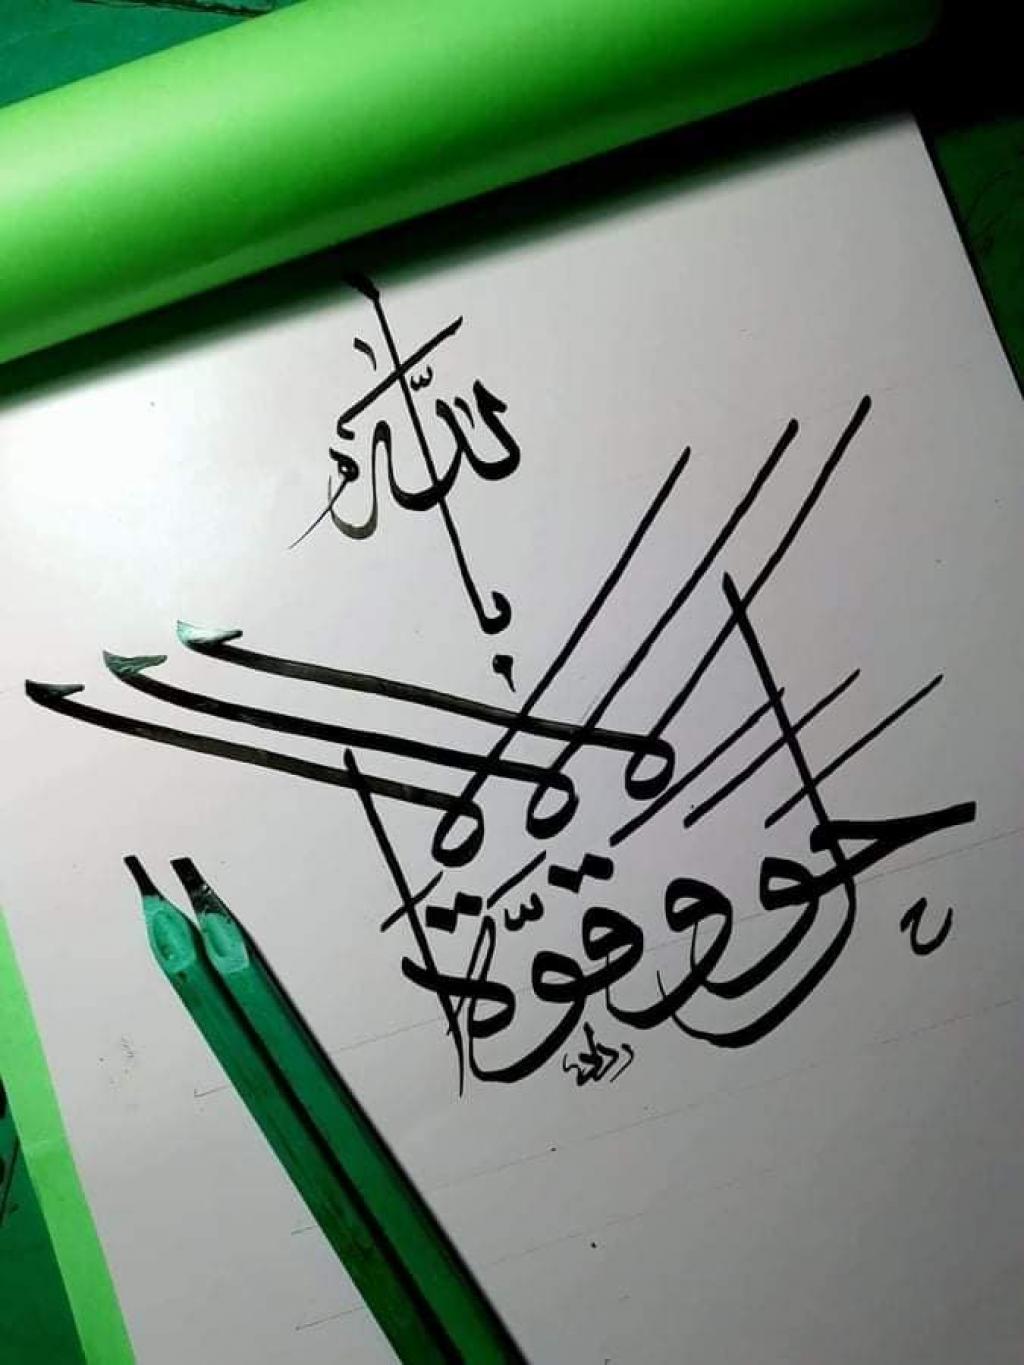 لا حول ولا قوّة إلا بالله